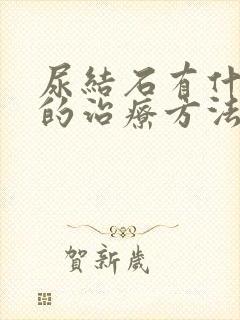 尿結石有什
的治療方法
賀新歲